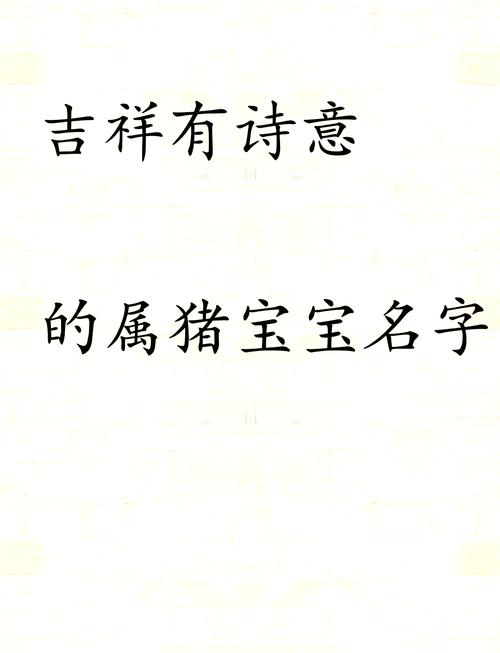 吉祥有诗意
的属猪宝宝名字